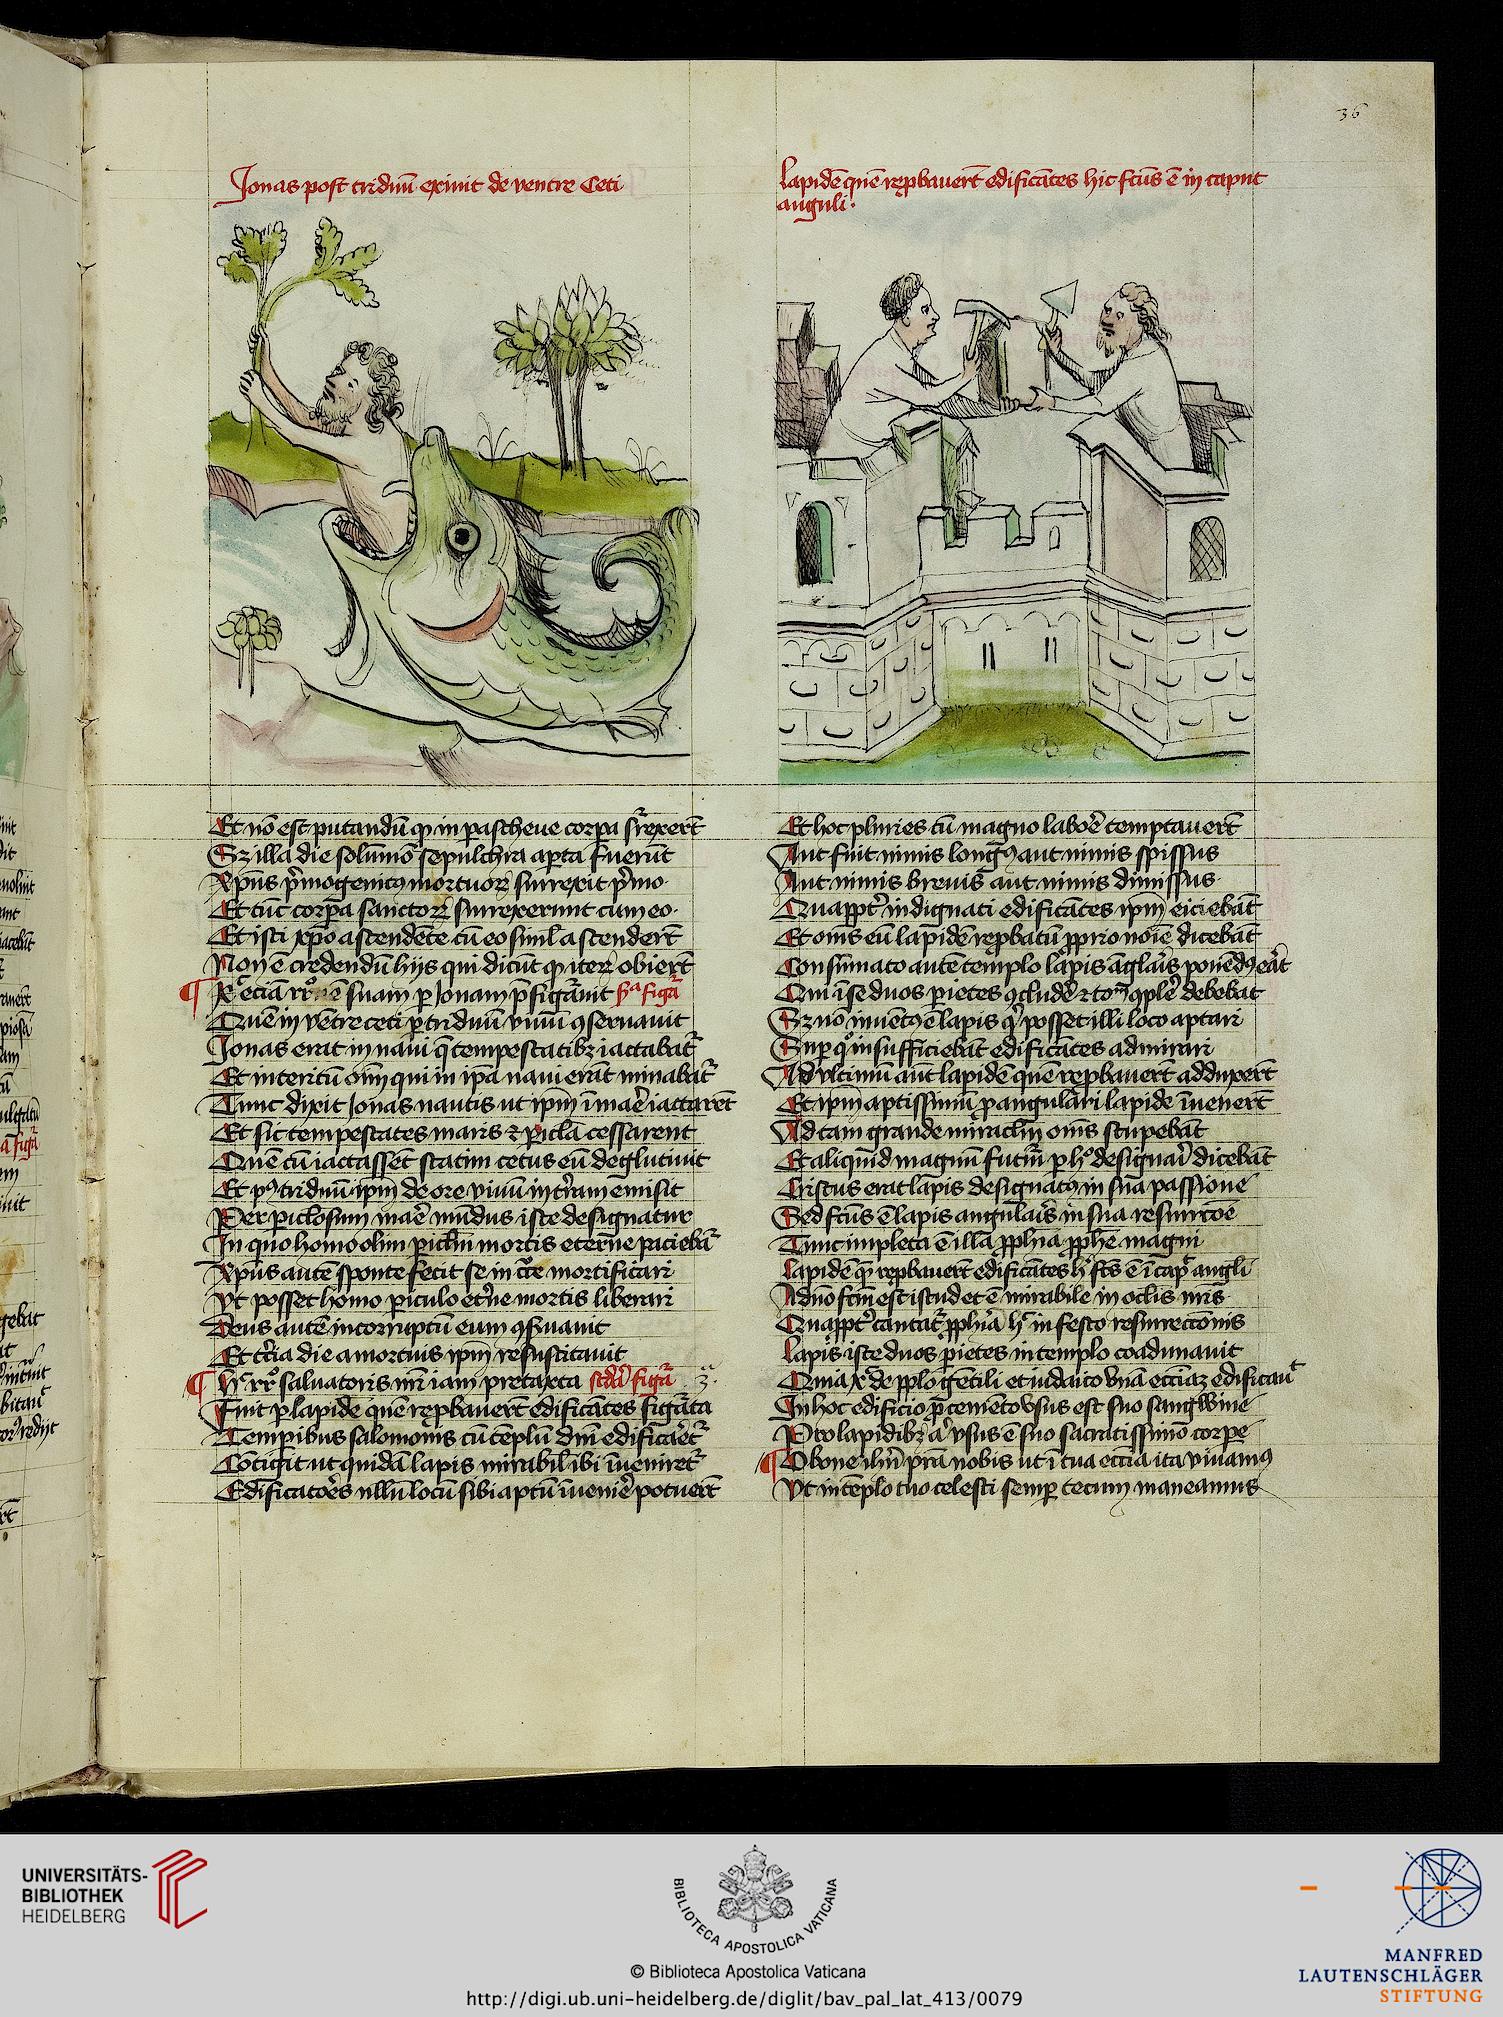 36
Jonas post triduū exiuit de ventre Ceti
Et nō est putandū ꝙ in pascheue corpa srrexert̄
Sꝫ illa die solūmō sepulchra apta fuerūt
Xpūs pͥmogenitꝯ mortuoꝝ surrexit pͥmo
Et tūc corpa sanctoꝝ surrexerunt cum eo
Et isti xpō ascendēte cū eo simul ascendert̄
Non ē credendū hijs qui dicūt ꝙ iteꝝ obiert̄
suam p Jonam p̄figuͣuit figuͣ
Quē in vētre ceti p triduū viuū ꝯseruauit
Jonas erat in naui q̄ tempestatibꝫ iactabat᷑
Et interitū oīm qui in ipa naui erāt minabat᷑
Tunc dixit Jonas nautis ut ipm ī mare iactarēt
Et sic tempestates maris ⁊ picla cessarent
Quē cū iactassēt statim cetus eū deglutiuit
Et pꝯ triduū ipm de ore viuū in terram emisit
Per piclosum mare mūdus iste designatur
In quo homo olim piclm̄ mortis eterne paciebat᷑
Xpūs autē sponte fecit se in cͣce mortificari
Vt posset homo piculo et͛ne mortis liberari
Deus autē incorruptū eum ꝯẜuauit
Et tͥcia die a mortuis ipm resuscitauit
saluatoris nrī iam pretaxta scd̄a figuͣ 3ͣ
Fuit p lapidē quē repbauert̄ edificātes figuͣta
Tempibus salomonis cū tēplū dnī edificaret᷑
Cōtigit ut quidā lapis mirabil ibi īueniret᷑
Edificatores nllū locū sibi aptū īuenire potuert̄
lapidē quē repbauert̄ edificātes hic fctūs ē in caput
anguli
Et hoc pluries cū magno labore temptauert̄
Aut fuit nimis longꝯ aut nimis spissus
Aut nimis breuis aut nimis dimissus
Quappt͛ indignati edificātes ipm eiciebāt
Et oms eū lapidē repbatū pprio noīe dicebāt
Consūmato autē templo lapis āglar̄is ponēdꝯ erat
Qui ī se duos pietes ꝯcludē ⁊ ꝯplē debebat
Sꝫ nō inuētꝯ ē lapis qͥ posset illi loco aptari
Sup qͦ insufficiebāt edificātes admirari
Ad vltimū aūt lapidē quē repbauert̄ adduxert̄
Et ipm aptissimū p angulari lapide īuenert̄
Ad tam grande miraclm̄ oms stupebāt
Et aliquid magnū futurū p hͦ designari dicebāt
Cristus erat lapis designatꝯ in sua passione
Sed fctūs ē lapis angularis in sua resurrcōe
Tunc impleta ē illa pphia pphe magni
Lapidē quē repbauert̄ edificātes hͥ fctūs ē ī caput anguli
A dnō fctm̄ est istud et ē mirabile in oclis nrīs
Quappt͛ cantat᷑ pphia hͨ in festo resurrectionis
Lapis iste duos pietes in templo coadunauit
Quia xͬ de pplo gētili et iudaico vnā eccīaꝫ edificauͭ
In hoc edificio p cemēto vsus est suo sangwine
Pro lapidibꝫ aͬ vsus ē suo sacratissimō corpe
O bone ihū p̄sta nobis ut ī tua eccīa ita viuamꝯ
Vt in tēplo tuo celesti semp tecum maneamus
UNIVERSITÄTS-
BIBLIOTHEK
HEIDELBERG
BIBLIOTECA APOSTOLICA VATICANA
© Biblioteca Apostolica Vaticana
http://digi.ub.uni-heidelberg.de/diglit/bav_pal_lat_413/0079
MANFRED
LAUTENSCHLÄGER
STIFTUNG